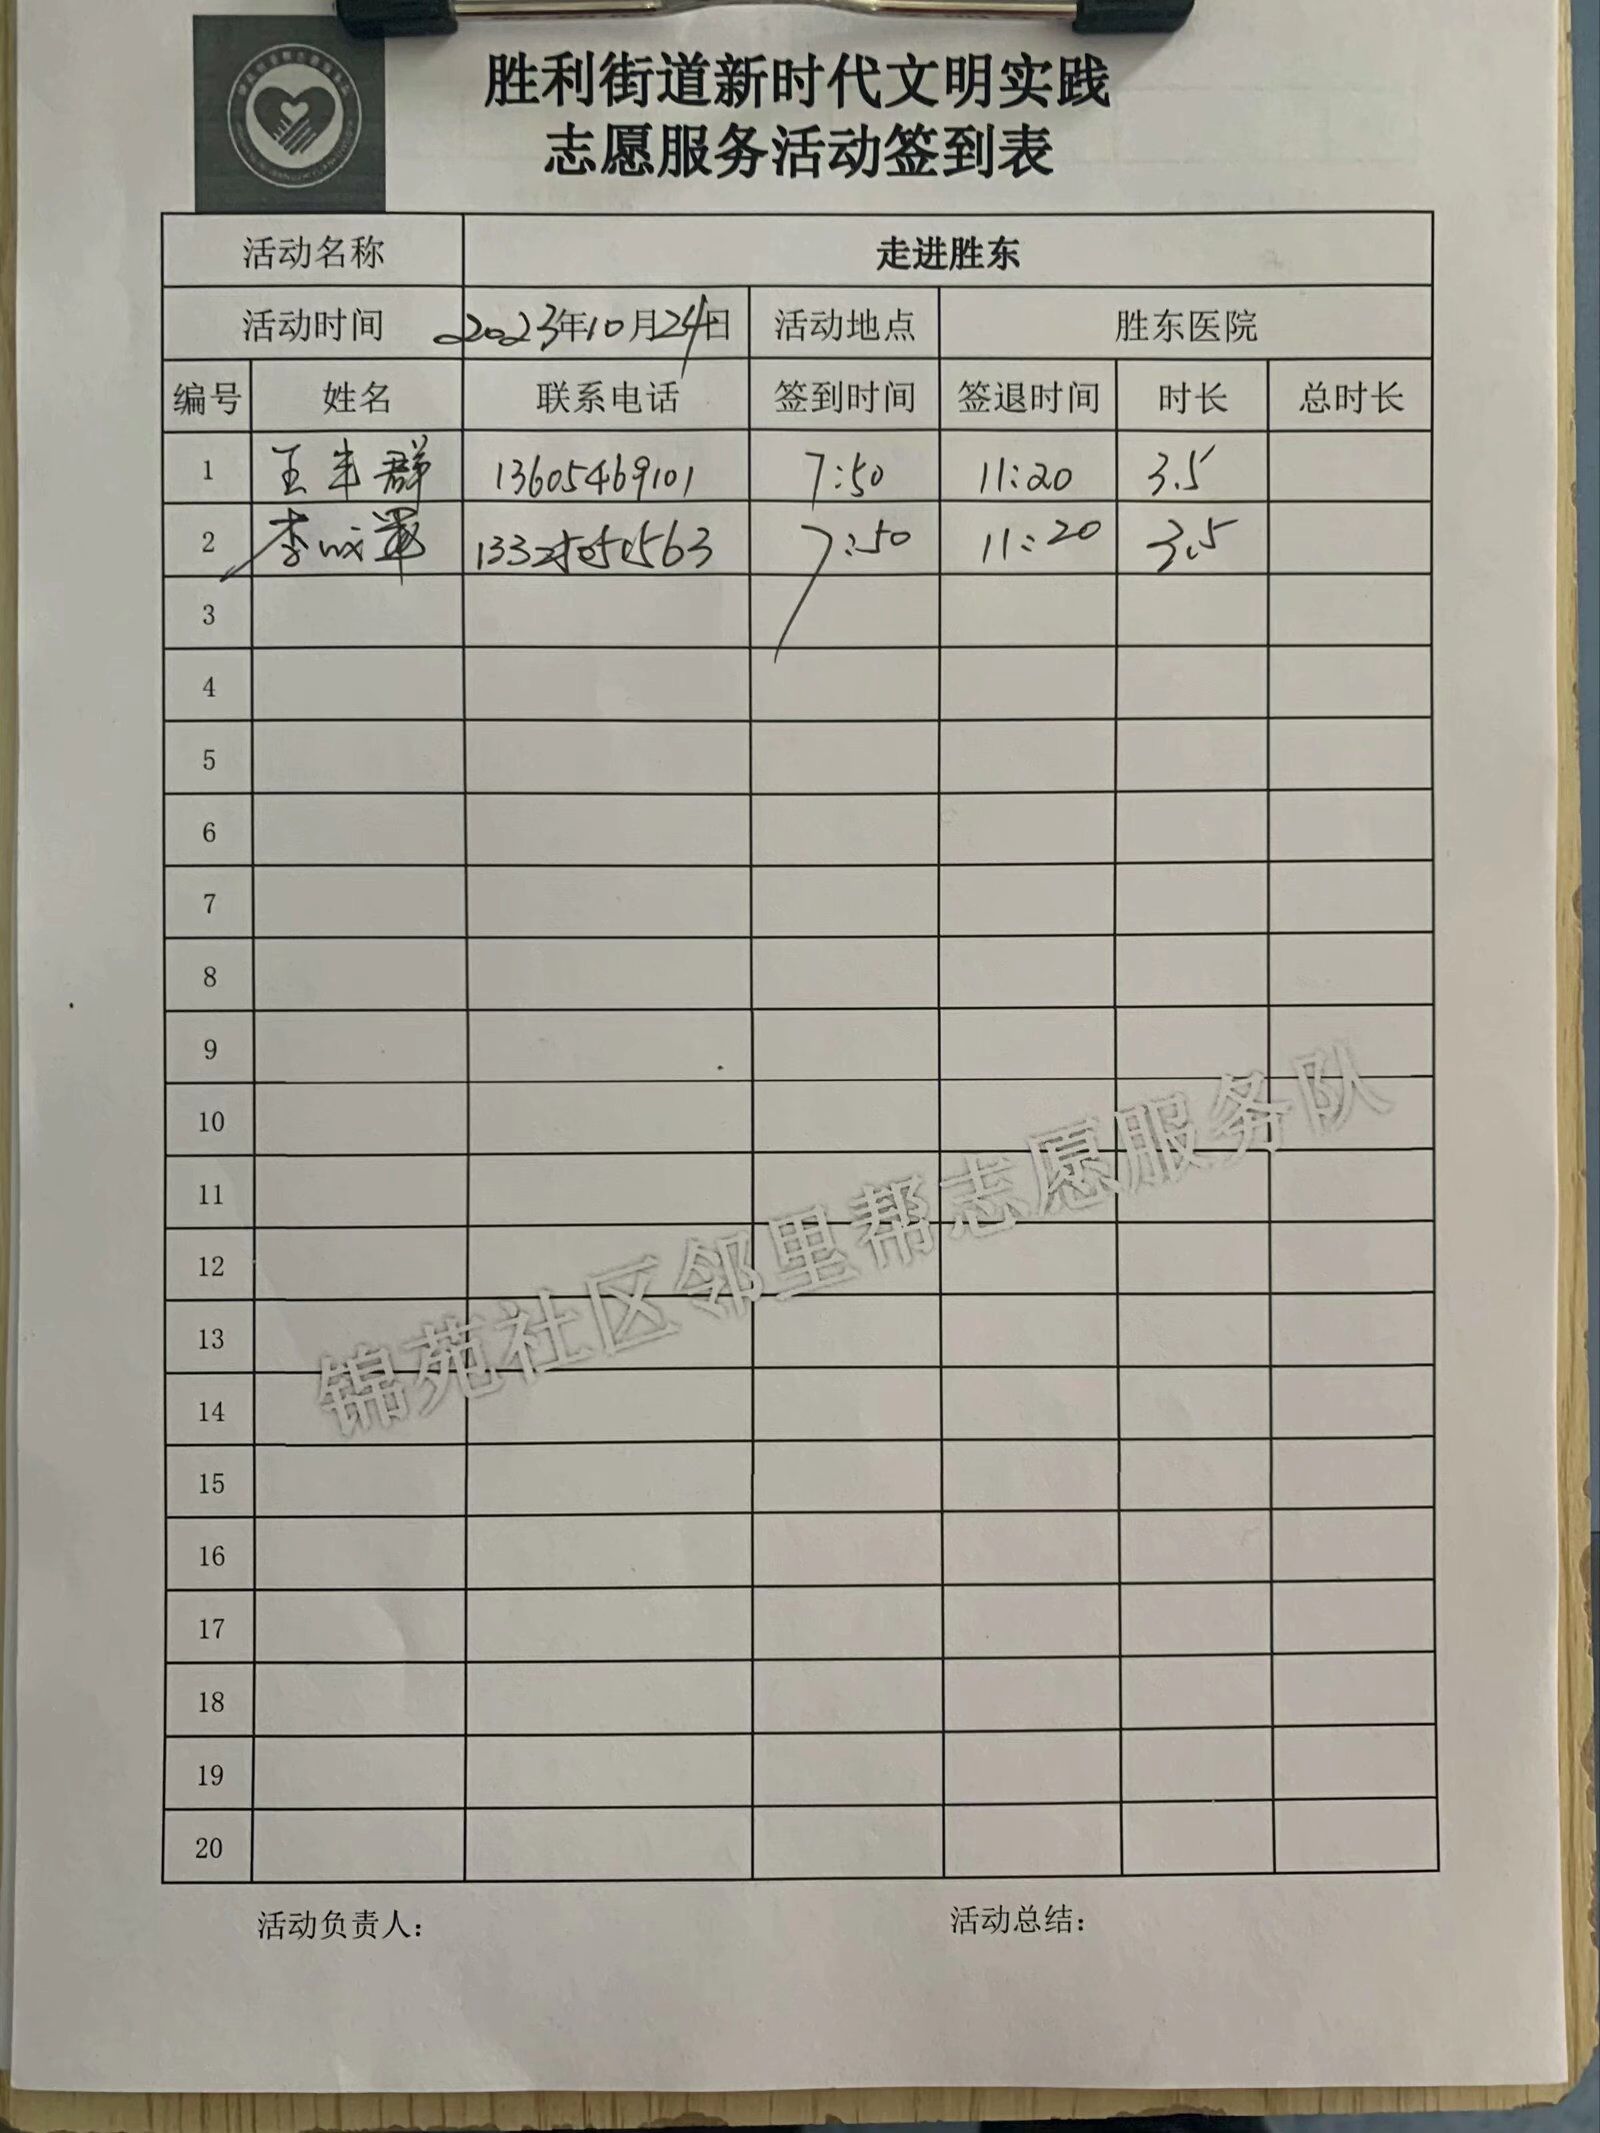 胜利街道新时代文明实践
志愿服务活动签到表
活动名称 走进胜东
活动时间 2023年10月24日 活动地点 胜东医院
编号 姓名 联系电话 签到时间 签退时间 时长 总时长
1 王丰群 13605469101 7:50 11:20 3.5
2 李成军 13325050563 7:50 11:20 3.5
3
4
5
6
7
8
9
10
11
12
13
14
15
16
17
18
19
20
锦苑社区邻里帮志愿服务队
活动负责人： 活动总结：